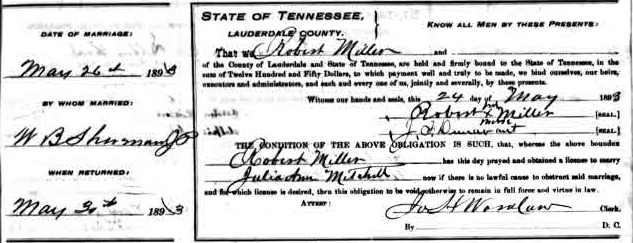 DATE OF MARRIAGE:
May 26th 1893
BY WHOM MARRIED:
W B Sherman JP
WHEN RETURNED:
May 30th 1893
STATE OF TENNESSEE,
LAUDERDALE COUNTY.
KNOW ALL MEN BY THESE PRESENTS:
That we Robert Miller and
of the County of Lauderdale and State of Tennessee, are held and firmly bound to the State of Tennessee, in the
sum of Twelve Hundred and Fifty Dollars, to which payment well and truly to be made, we bind ourselves, our heirs,
executors and administrators, and each and every one of us, jointly and severally, by these presents.
Witness our hands and seals, this 24 day of May 1893
his
Robert X Miller [SEAL.]
mark
J. [SEAL.]
THE CONDITION OF THE ABOVE OBLIGATION IS SUCH, that, whereas the above bounden
Robert Miller has this day prayed and obtained a license to marry
Julia Ann Mitchell now if there is no lawful cause to obstruct said marriage,
and for which license is desired, then this obligation to be void, otherwise to remain in full force and virtue in law.
ATTEST: Clerk.
By D. C.